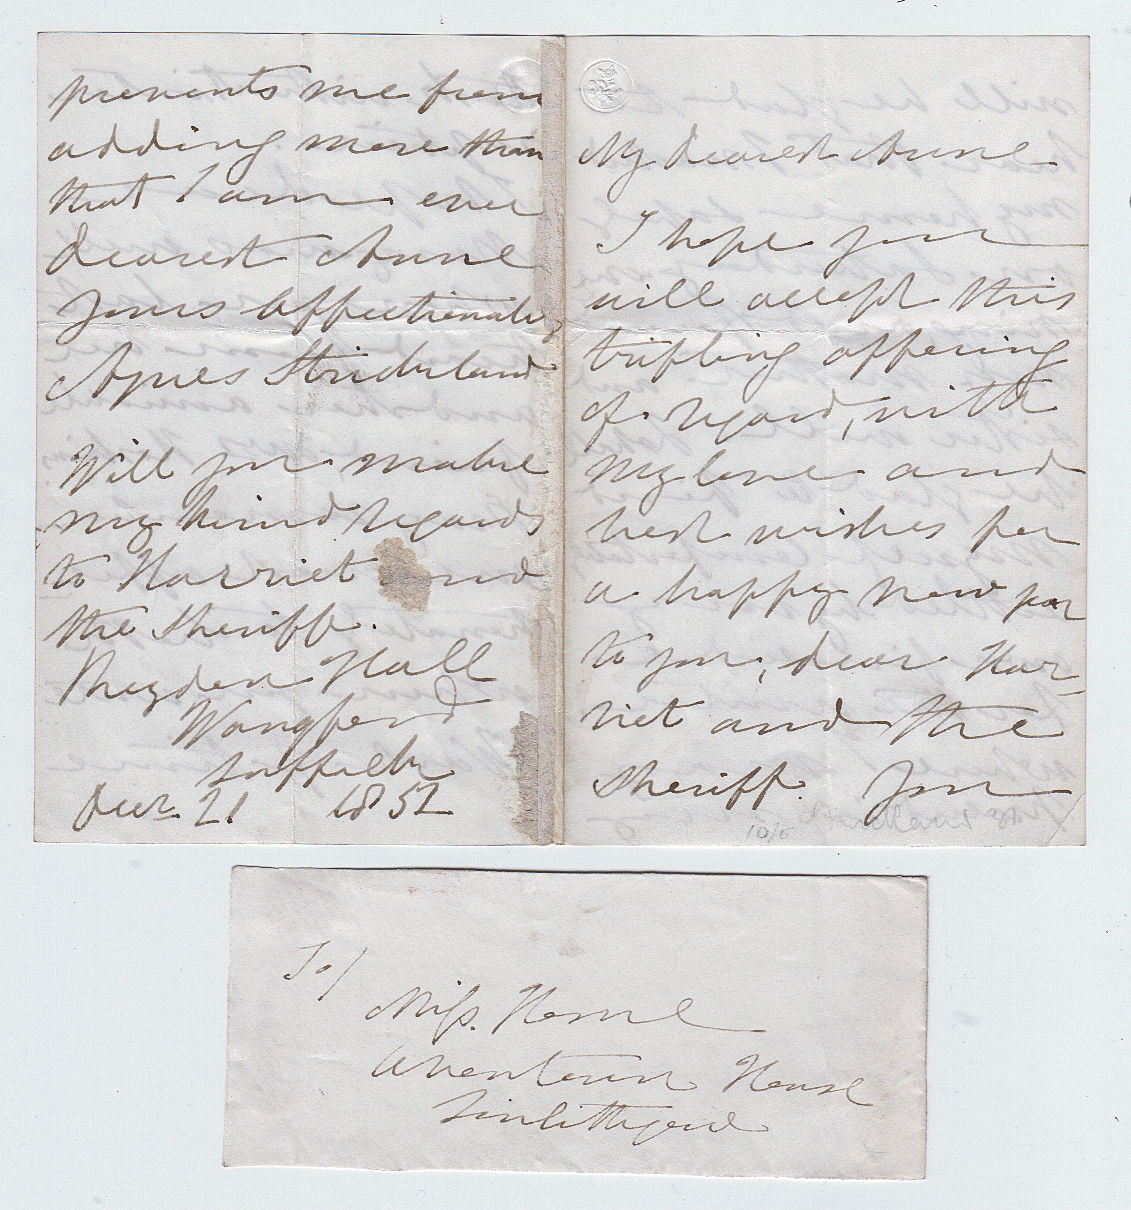 My dearest Anne
I hope you
will accept this
trifling offering
of regard, with
my love and
best wishes for
a happy new year
to you, dear Har-
riet and the
Sheriff. You
10/6 Strickland
prevents me from
adding more than
that I am ever
dearest Anne
Yours affectionately
Agnes Strickland
Will you make
my kind regards
to Harriet and
the Sheriff.
Reydon Hall
Wangford
Suffolk
Decr 21 1852
To/
Miss Horne
Avontown House
Linlithgow